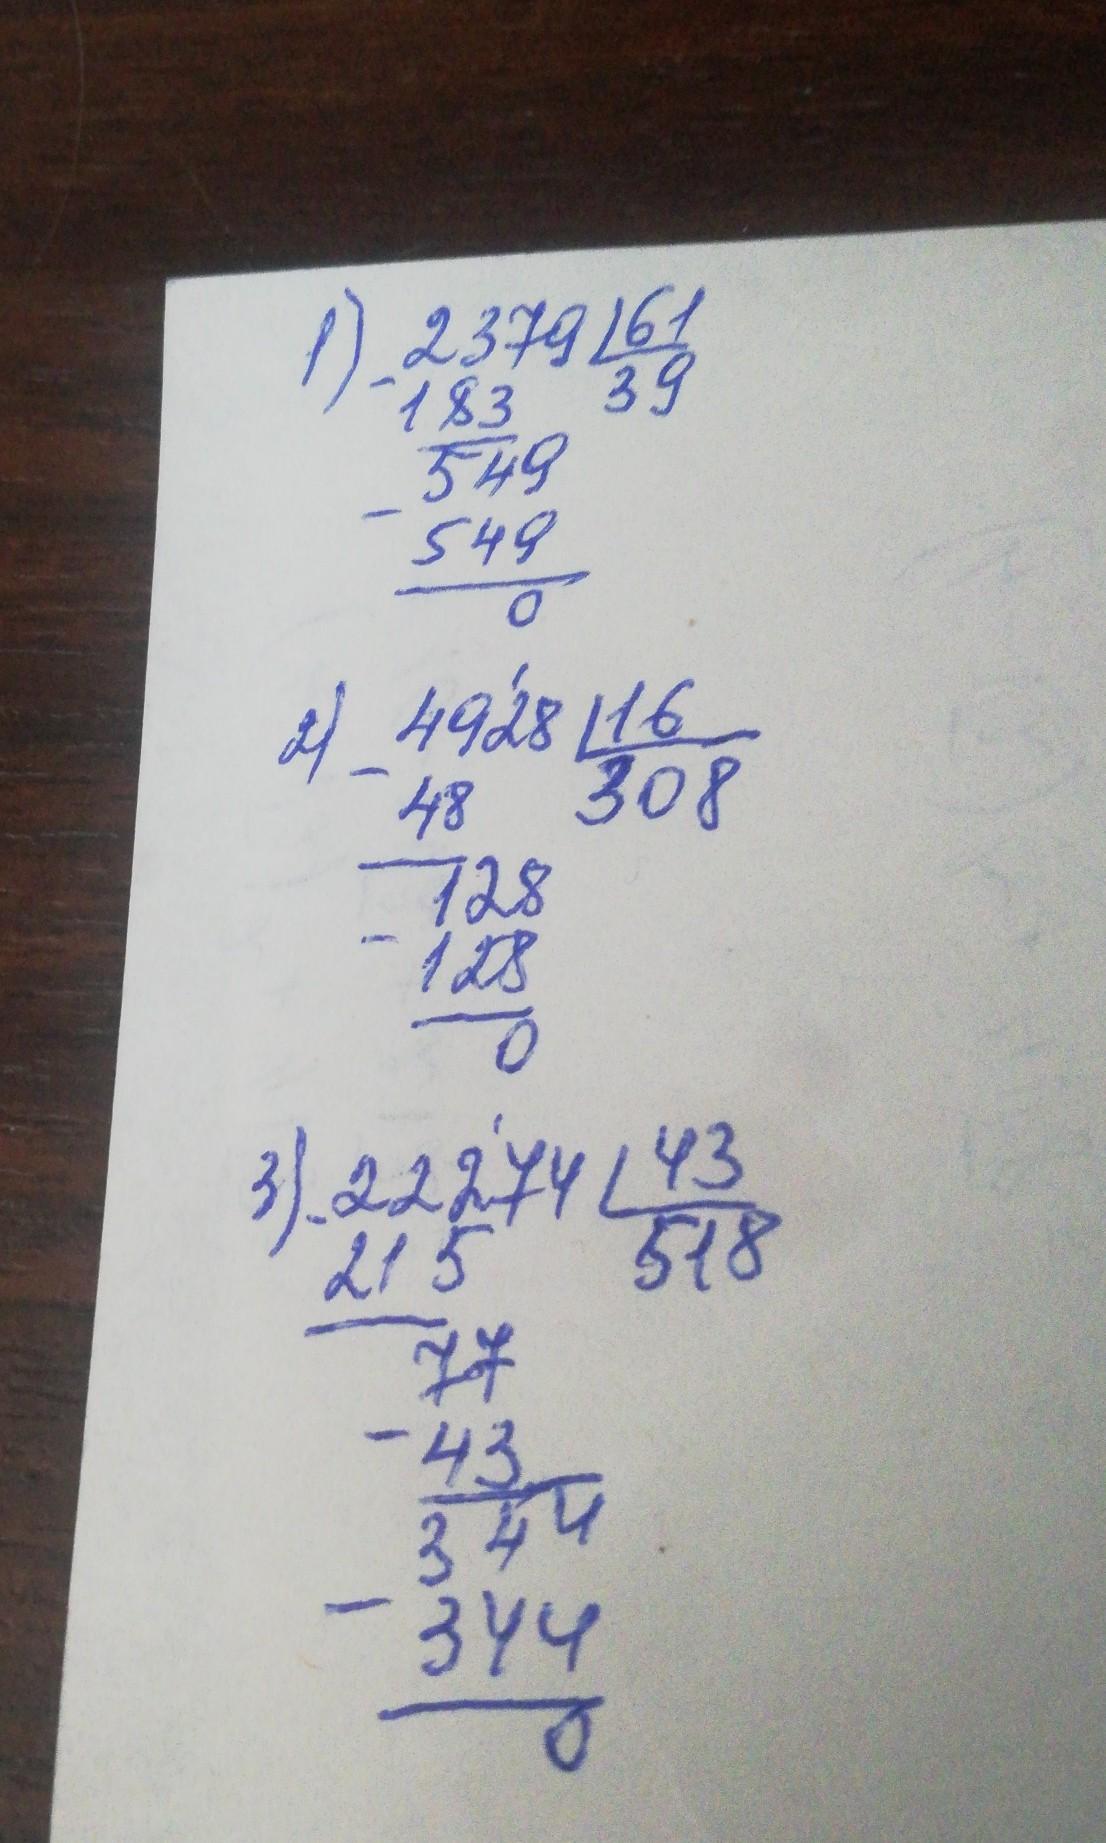 1) - 2379 | 61
183 39
549
- 549
0
2) - 4928 | 16
48 308
128
- 128
0
3) - 22274 | 43
215 518
77
- 43
344
- 344
0